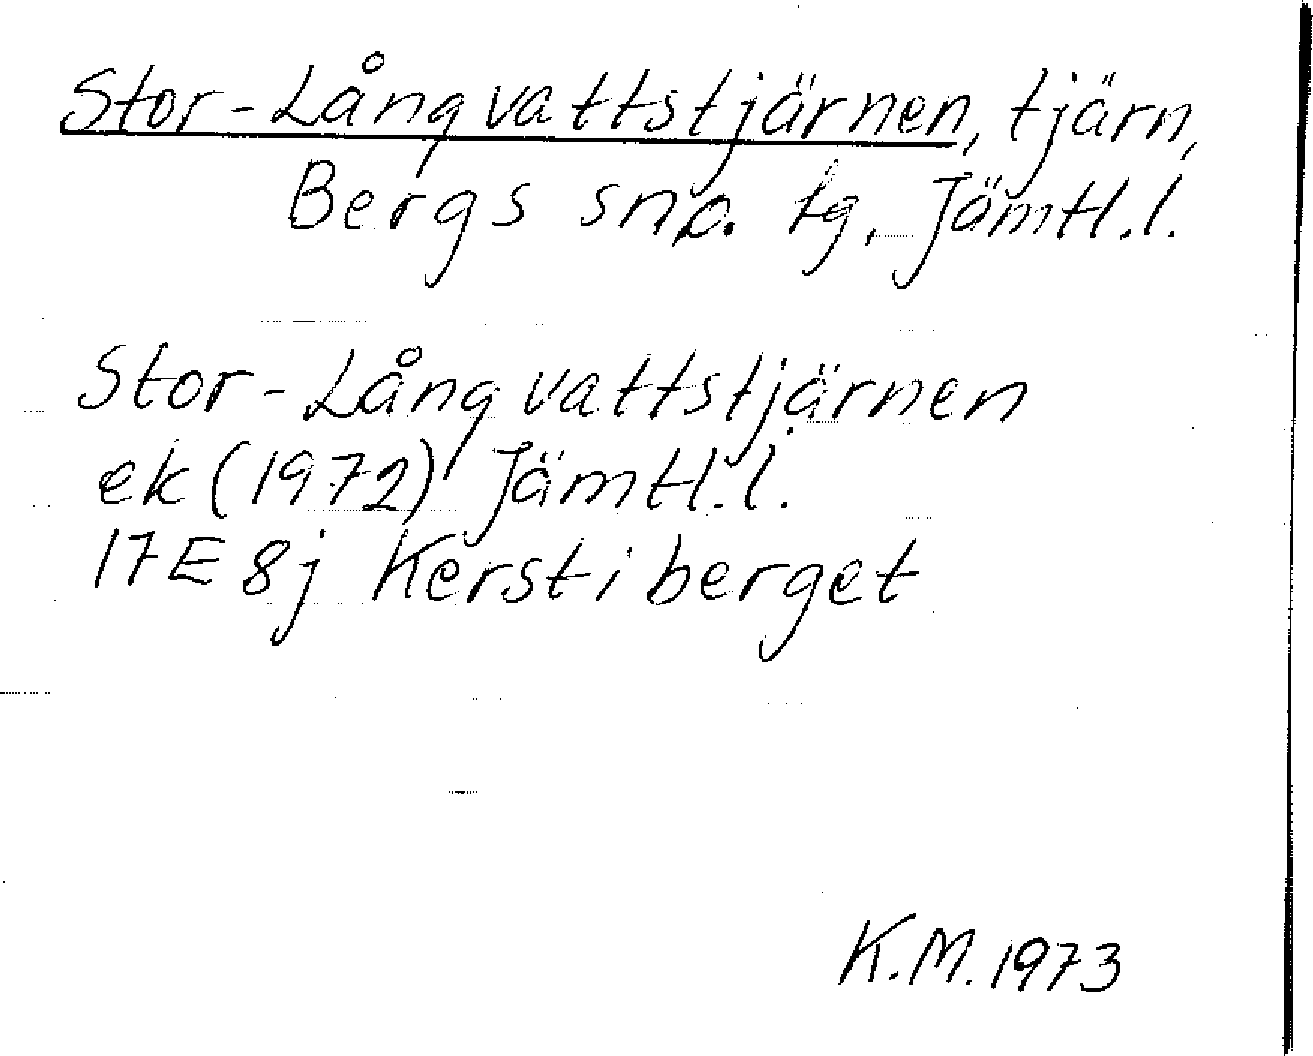 Stor-Långvattstjärnen, tjärn,
Bergs sn. tg, Jämtl.l.
Stor-Långvattstjärnen
ek (1972) Jämtl.l.
17E 8j Kerstiberget
K.M. 1973